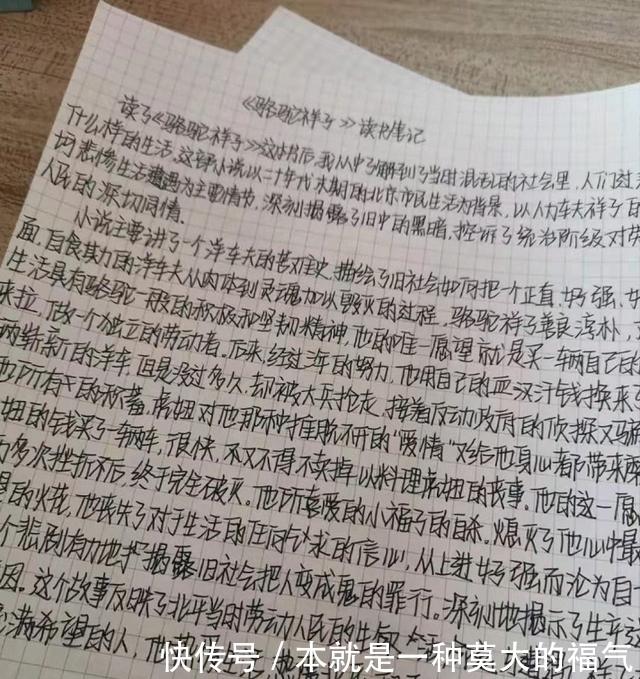 《骆驼祥子》读书笔记
读了《骆驼祥子》这本书后,我从中了解到了当时混乱的社会里,人们过
什么样的生活,这部小说以二十年代末期的北京市民生活为背景,以人力车夫祥子的
坷悲惨生活遭遇为主要情节,深刻揭露了旧中的黑暗,控诉了统治阶级对劳
人民的深切同情。
小说主要讲了一个洋车夫的苦难史,描绘了旧社会如何把一个正直、好强、
面,自食其力的洋车夫从肉体到灵魂加以毁灭的过程,骆驼祥子善良淳朴,
生活具有骆驼一般的积极和坚韧精神,他的唯一愿望就是买一辆自己的
来拉,做一个独立的劳动者。后来,经过年的努力,他用自己的血汗钱换来
两崭新的洋车,但是没过多久,却被大兵抢走,接着反动政府的侦探又骗
他所有的积蓄,虎妞对他那种推脱不开的"爱情"又给他身心都带来
妞的钱买了一辆车,很快,不又不得不卖掉以料理虎妞的丧事。他的这一愿
多次挫折后,终于完全破灭。他所喜爱的小福子的自杀。熄灭了他心中最
的火花,他丧失了对于生活的任何求的信心,从上进好强而沦为自
个悲剧有力地揭露旧社会把人变成鬼的罪行。深刻地揭示了生
因。这个故事反映了北平当时劳动人民的生
满希望的人,他
快传号/本就是一种莫大的福气